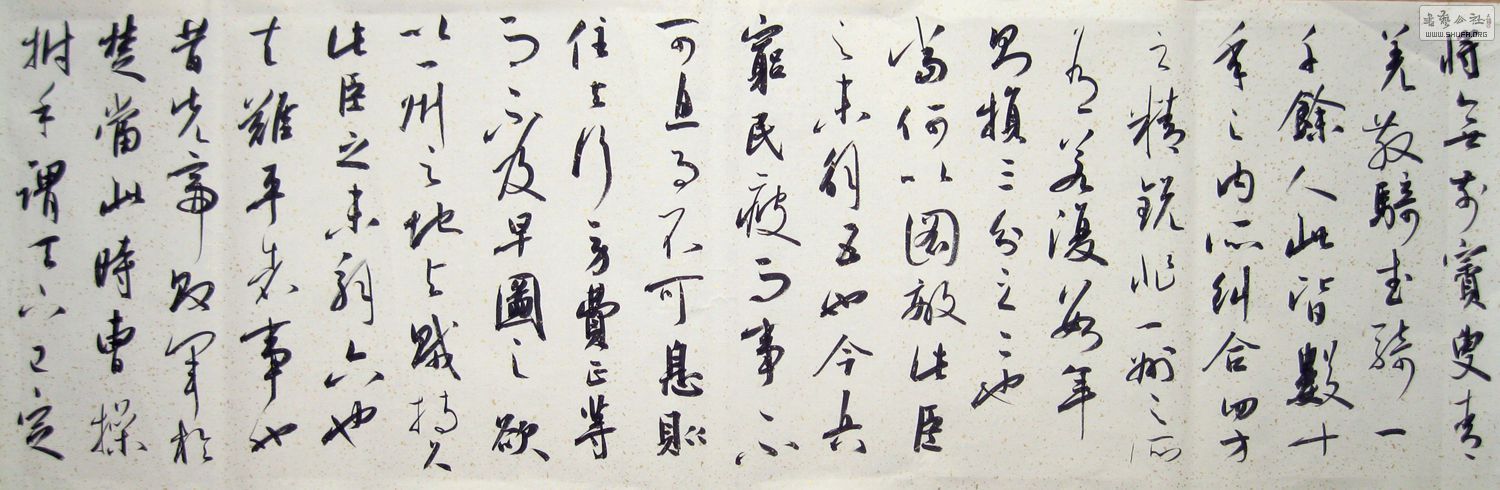 將無前賨叟青
羌散騎武騎一
千餘人此皆數十
年之內所糾合四方
之精銳非一州之所
有若復數年
則損三分之二也
當何以圖敵此臣
之未解五也今兵
窮民疲而事不
可息事不可息則
住与行勞費正等
而不及早圖之欲
以一州之地与賊持久
此臣之未解六也
夫難平者事也
昔先帝敗軍於
楚當此時曹操
拊手謂天下已定
書藝公社
WWW.SHUFA.ORG